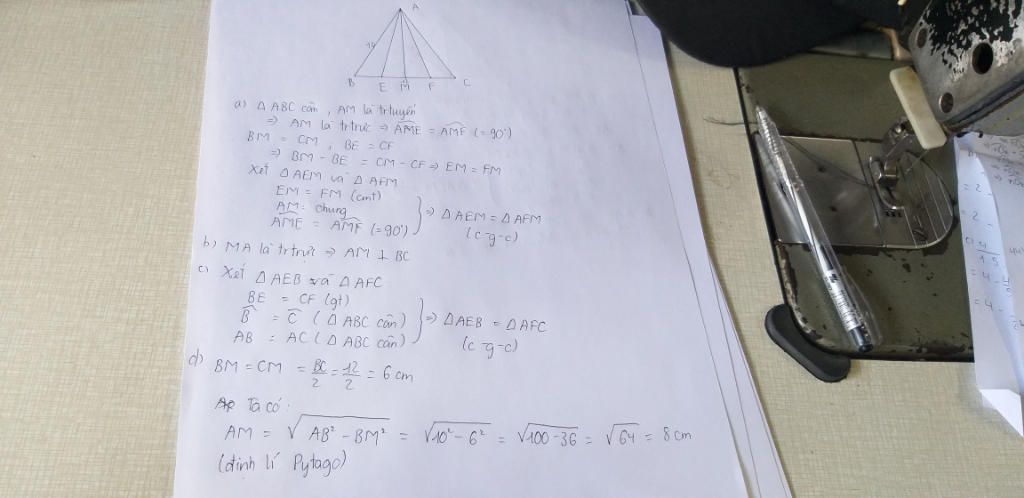 A
10
B E M F C
a) △ ABC cân, AM là tr tuyến
=> AM là tr trực => AME = AMF (=90°)
BM = CM, BE = CF
=> BM - BE = CM - CF => EM = FM
Xét △AEM và △AFM
EM = FM (cmt)
AM: chung
AME = AMF (=90°)
} => △AEM = △AFM
(c-g-c)
b) MA là tr trực => AM ⊥ BC
c) Xét △AEB và △AFC
BE = CF (gt)
B = C (△ABC cân)
AB = AC (△ABC cân)
} => △AEB = △AFC
(c-g-c)
d) BM = CM = BC/2 = 12/2 = 6 cm
Ta có:
AM = √AB² - BM² = √10² - 6² = √100-36 = √64 = 8 cm
(định lí Pytago)
= 2 -
= 2 -
c) 4
15
= 4 -
= 4 -